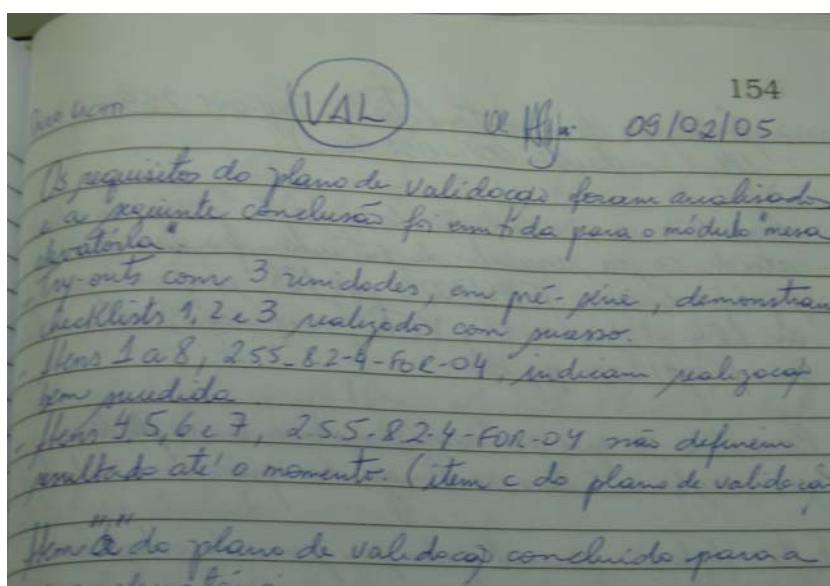 154
VAL
09/02/05
Os requisitos do plano de validação foram analisados
e a seguinte conclusão foi emitida para o módulo "mesa
elevatória".
Try-outs com 3 unidades, em pré-série, demonstram
checklists 1, 2 e 3 realizados com sucesso.
. Itens 1 a 8, 255-82-4-FOR-04, indicam realização
bem sucedida.
. Itens 4, 5, 6 e 7, 255-82-4-FOR-04 não definem
resultado até o momento. (item c do plano de validação
Item "a" do plano de validação concluído para a